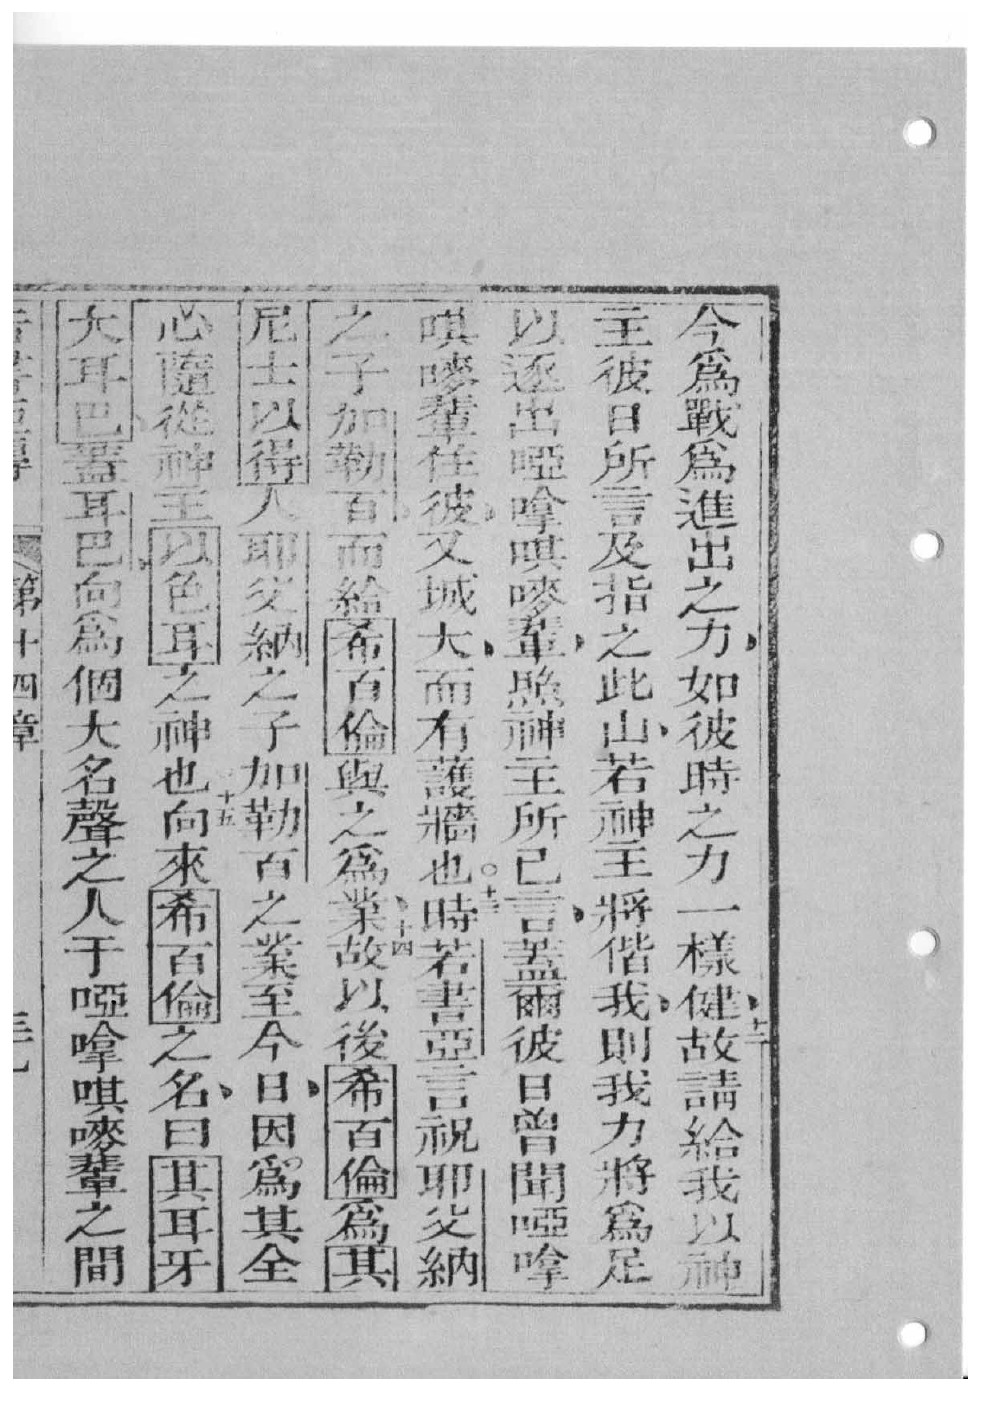 今爲戰爲進出之力如彼時之力一樣健十二故請給我以神
主彼日所言及指之此山若神主將偕我則我力將爲足
以逐出啞㖼唭嘜輩照神主所已言蓋爾彼日曾聞啞㖼
唭嘜輩住彼又城大而有護牆也○十三時若書亞言祝耶㕛納
之子加勒百而給希百倫與之爲業十四故以後希百倫爲其
尼士以得人耶㕛納之子加勒百之業至今日因爲其全
心隨從神主以色耳之神也十五向來希百倫之名曰其耳牙
大耳巴蓋耳巴向爲個大名聲之人于啞㖼唭嘜輩之間
若書亞傳 第十四章